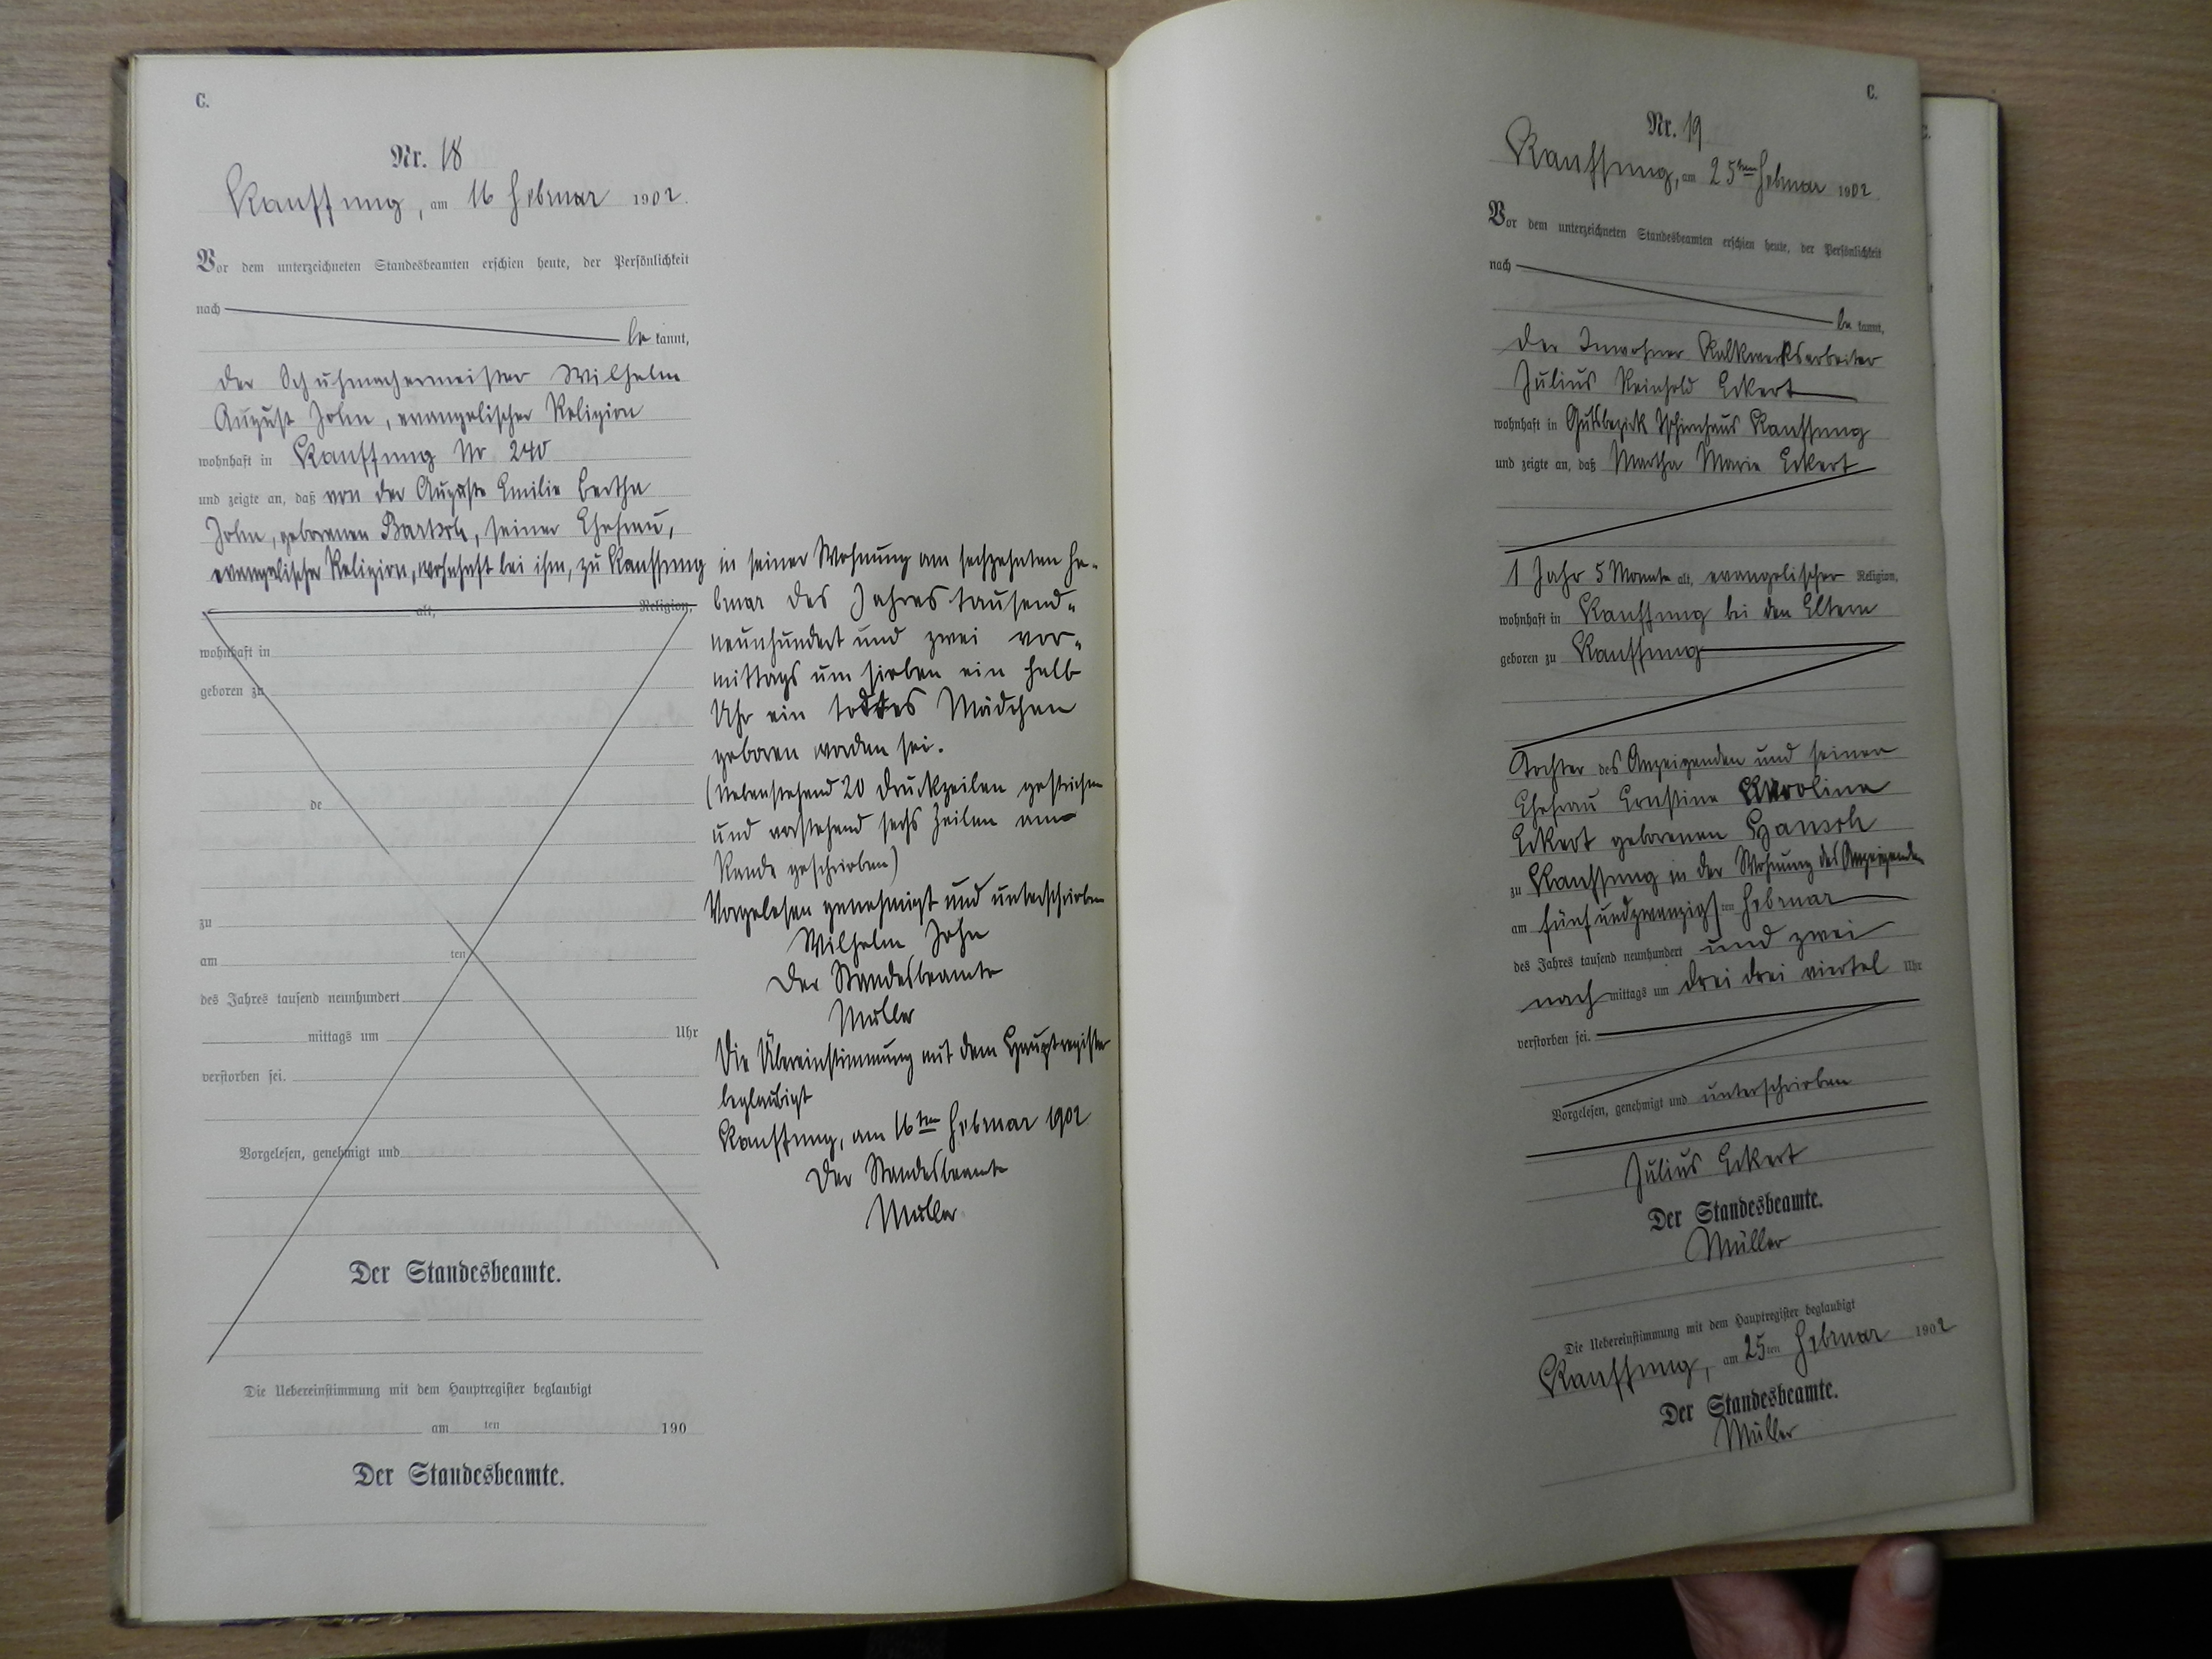 C.
Nr. 18
Kauffung, am 16 Februar 1902.
Vor dem unterzeichneten Standesbeamten erschien heute, der Persönlichkeit
nach
be kannt,
der Schuhmachermeister Wilhelm
August John, evangelischer Religion
wohnhaft in Kauffung Nr 240
und zeigte an, daß von der Auguste Emilie Bertha
John, geborenen Bartsch, seiner Ehefrau,
evangelischer Religion, wohnhaft bei ihm, zu Kauffung
alt, Religion,
wohnhaft in
geboren zu
de
zu
am ten
des Jahres tausend neunhundert
mittags um Uhr
verstorben sei.
Vorgelesen, genehmigt und
Der Standesbeamte.
Die Uebereinstimmung mit dem Hauptregister beglaubigt
am ten 190
Der Standesbeamte.
in seiner Wohnung am sechzehnten Fe-
bruar des Jahres tausend-
neunhundert und zwei vor-
mittags um sieben ein halb
Uhr ein todtes Mädchen
geboren worden sei.
(Nebenstehend 20 Druckzeilen gestrichen
und vorstehend sechs Zeilen am
Rande geschrieben)
Vorgelesen genehmigt und unterschrieben
Wilhelm John
Der Standesbeamte
Müller
Die Übereinstimmung mit dem Hauptregister
beglaubigt
Kauffung, am 16ten Februar 1902
Der Standesbeamte
Müller
C.
Nr. 19
Kauffung, am 25ten Februar 1902
Vor dem unterzeichneten Standesbeamten erschien heute, der Persönlichkeit
nach
be kannt,
der Inwohner Kalkwerksarbeiter
Julius Reinhold Eckert
wohnhaft in Gutsbezirk Tschirnhaus Kauffung
und zeigte an, daß Martha Marie Eckert
1 Jahr 5 Monate alt, evangelischer Religion,
wohnhaft in Kauffung bei den Eltern
geboren zu Kauffung
Tochter des Anzeigenden und seiner
Ehefrau Ernstine Karoline
Eckert geborenen Hansch
zu Kauffung in der Wohnung des Anzeigenden
am fünfundzwanzigsten Februar
des Jahres tausend neunhundert und zwei
nach mittags um drei drei viertel Uhr
verstorben sei.
Vorgelesen, genehmigt und unterschrieben
Julius Eckert
Der Standesbeamte.
Müller
Die Uebereinstimmung mit dem Hauptregister beglaubigt
Kauffung, am 25ten Februar 1902
Der Standesbeamte.
Müller